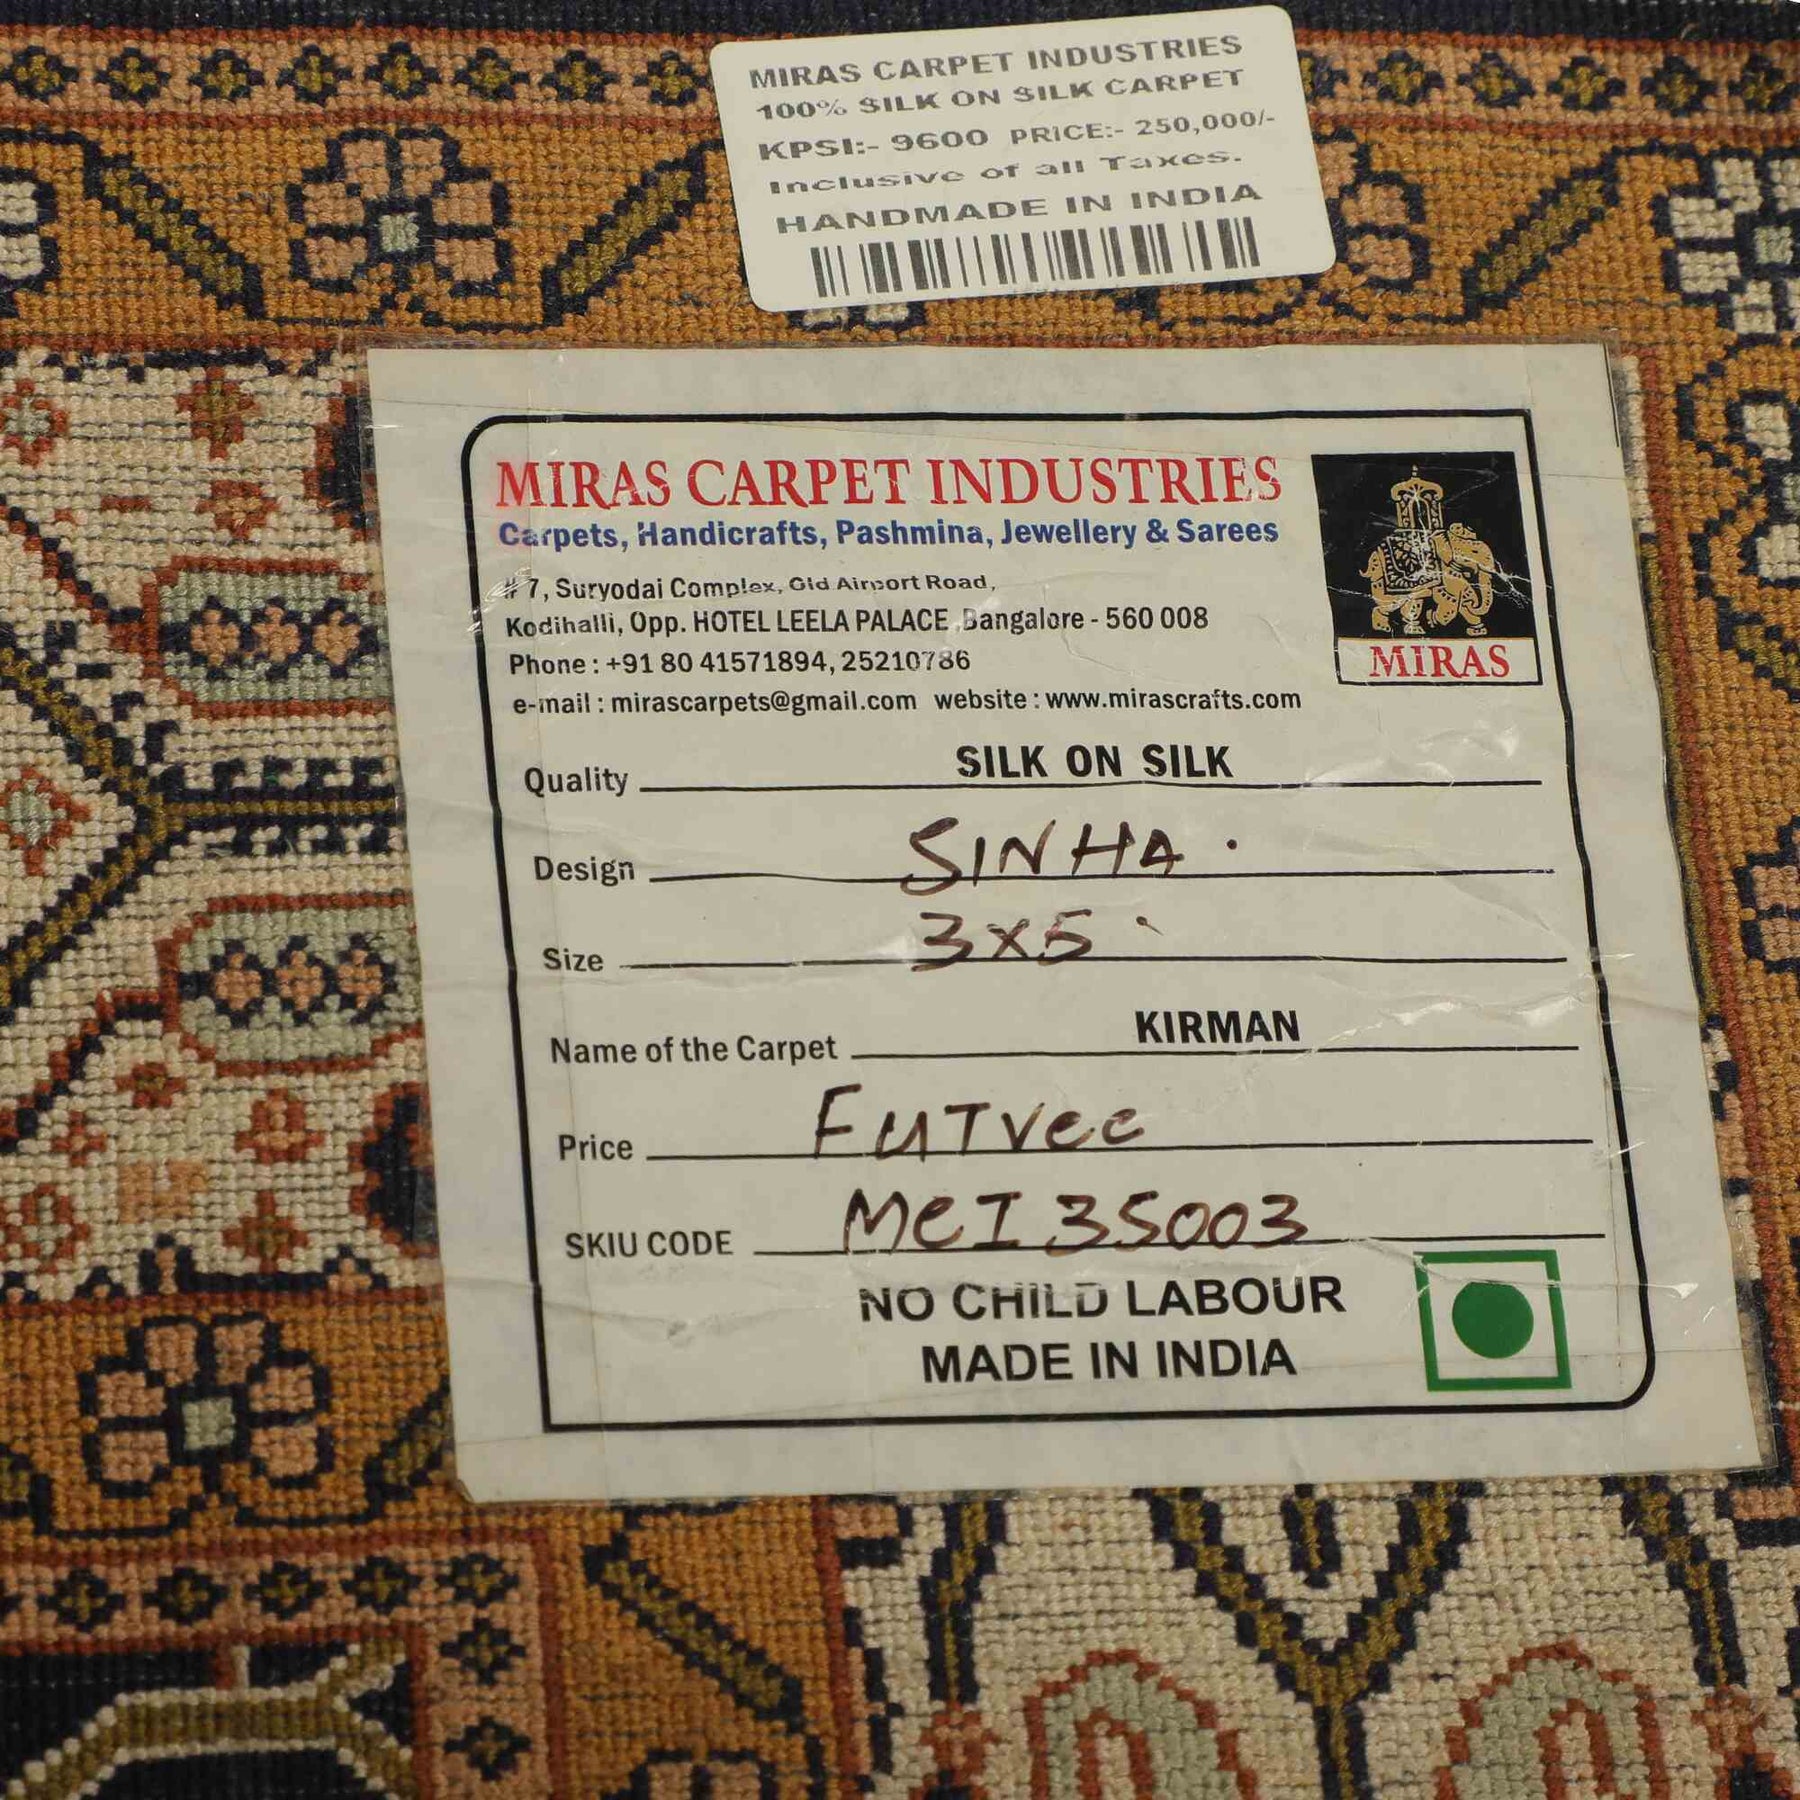 MIRAS CARPET INDUSTRIES
100% SILK ON SILK CARPET
KPSI:- 9600 PRICE:- 250,000/-
Inclusive of all Taxes.
HANDMADE IN INDIA
MIRAS CARPET INDUSTRIES
Carpets, Handicrafts, Pashmina, Jewellery & Sarees
# 7, Suryodai Complex, Old Airport Road,
Kodihalli, Opp. HOTEL LEELA PALACE, Bangalore - 560 008
Phone : +91 80 41571894, 25210786
e-mail : mirascarpets@gmail.com website : www.mirascrafts.com
MIRAS
Quality SILK ON SILK
Design SINHA.
Size 3x5
Name of the Carpet KIRMAN
Price FUTVCC
SKIU CODE MCI35003
NO CHILD LABOUR
MADE IN INDIA